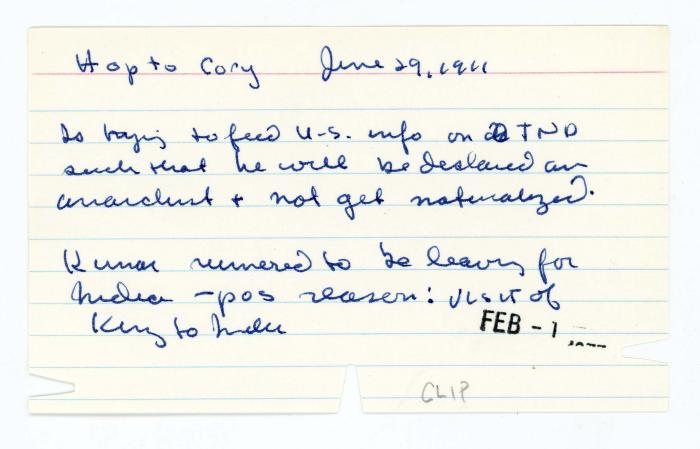 Hop to Cory June 29, 1911
Is trying to feed U.S. info on TND
such that he will be declared an
anarchist + not get naturalized.
Kumar rumored to be leaving for
India - pos reason: visit of
King to India
FEB - 1
CLIP